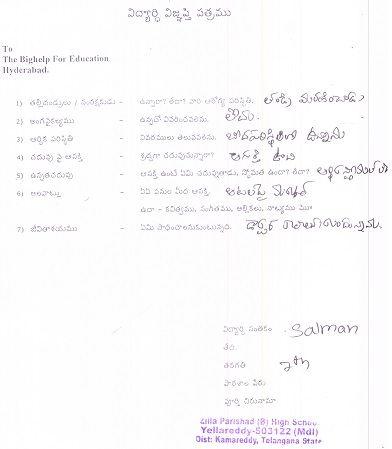 విద్యార్థి విజ్ఞప్తి పత్రము
To
The Bighelp For Education
Hyderabad.
1) తల్లిదండ్రులు / సంరక్షకుడు - ఉన్నారా? లేదా? వారి ఆరోగ్య పరిస్థితి. తండ్రి మరణించాడు
2) అంగవైకల్యము - ఉన్నచో వివరించవలెను. లేదు.
3) ఆర్థిక పరిస్థితి - వివరములు తెలుపవలెను. ఉన్నాము
4) చదువు పై ఆసక్తి - శ్రద్ధగా చదువుచున్నారా? ఆసక్తి ఉంది
5) ఉన్నతచదువు - ఆసక్తి ఉంటే ఏమి చదువుతాడు, స్తోమత ఉందా? లేదా?
6) అలవాట్లు - ఏఏ పనుల మీద ఆసక్తి. ఆటలపై
ఉదా - కవిత్వము, సంగీతము, అల్లికలు, నాట్యము మొ॥
7) జీవితాశయము - ఏమి సాధించాలనుకుంటున్నది. డాక్టర్
విద్యార్థి సంతకం : Salman
తేది.
తరగతి 7th
పాఠశాల పేరు
పూర్తి చిరునామా
Zilla Parishad (B) High School
Yellareddy-503122 (Mdl)
Dist: Kamareddy, Telangana State